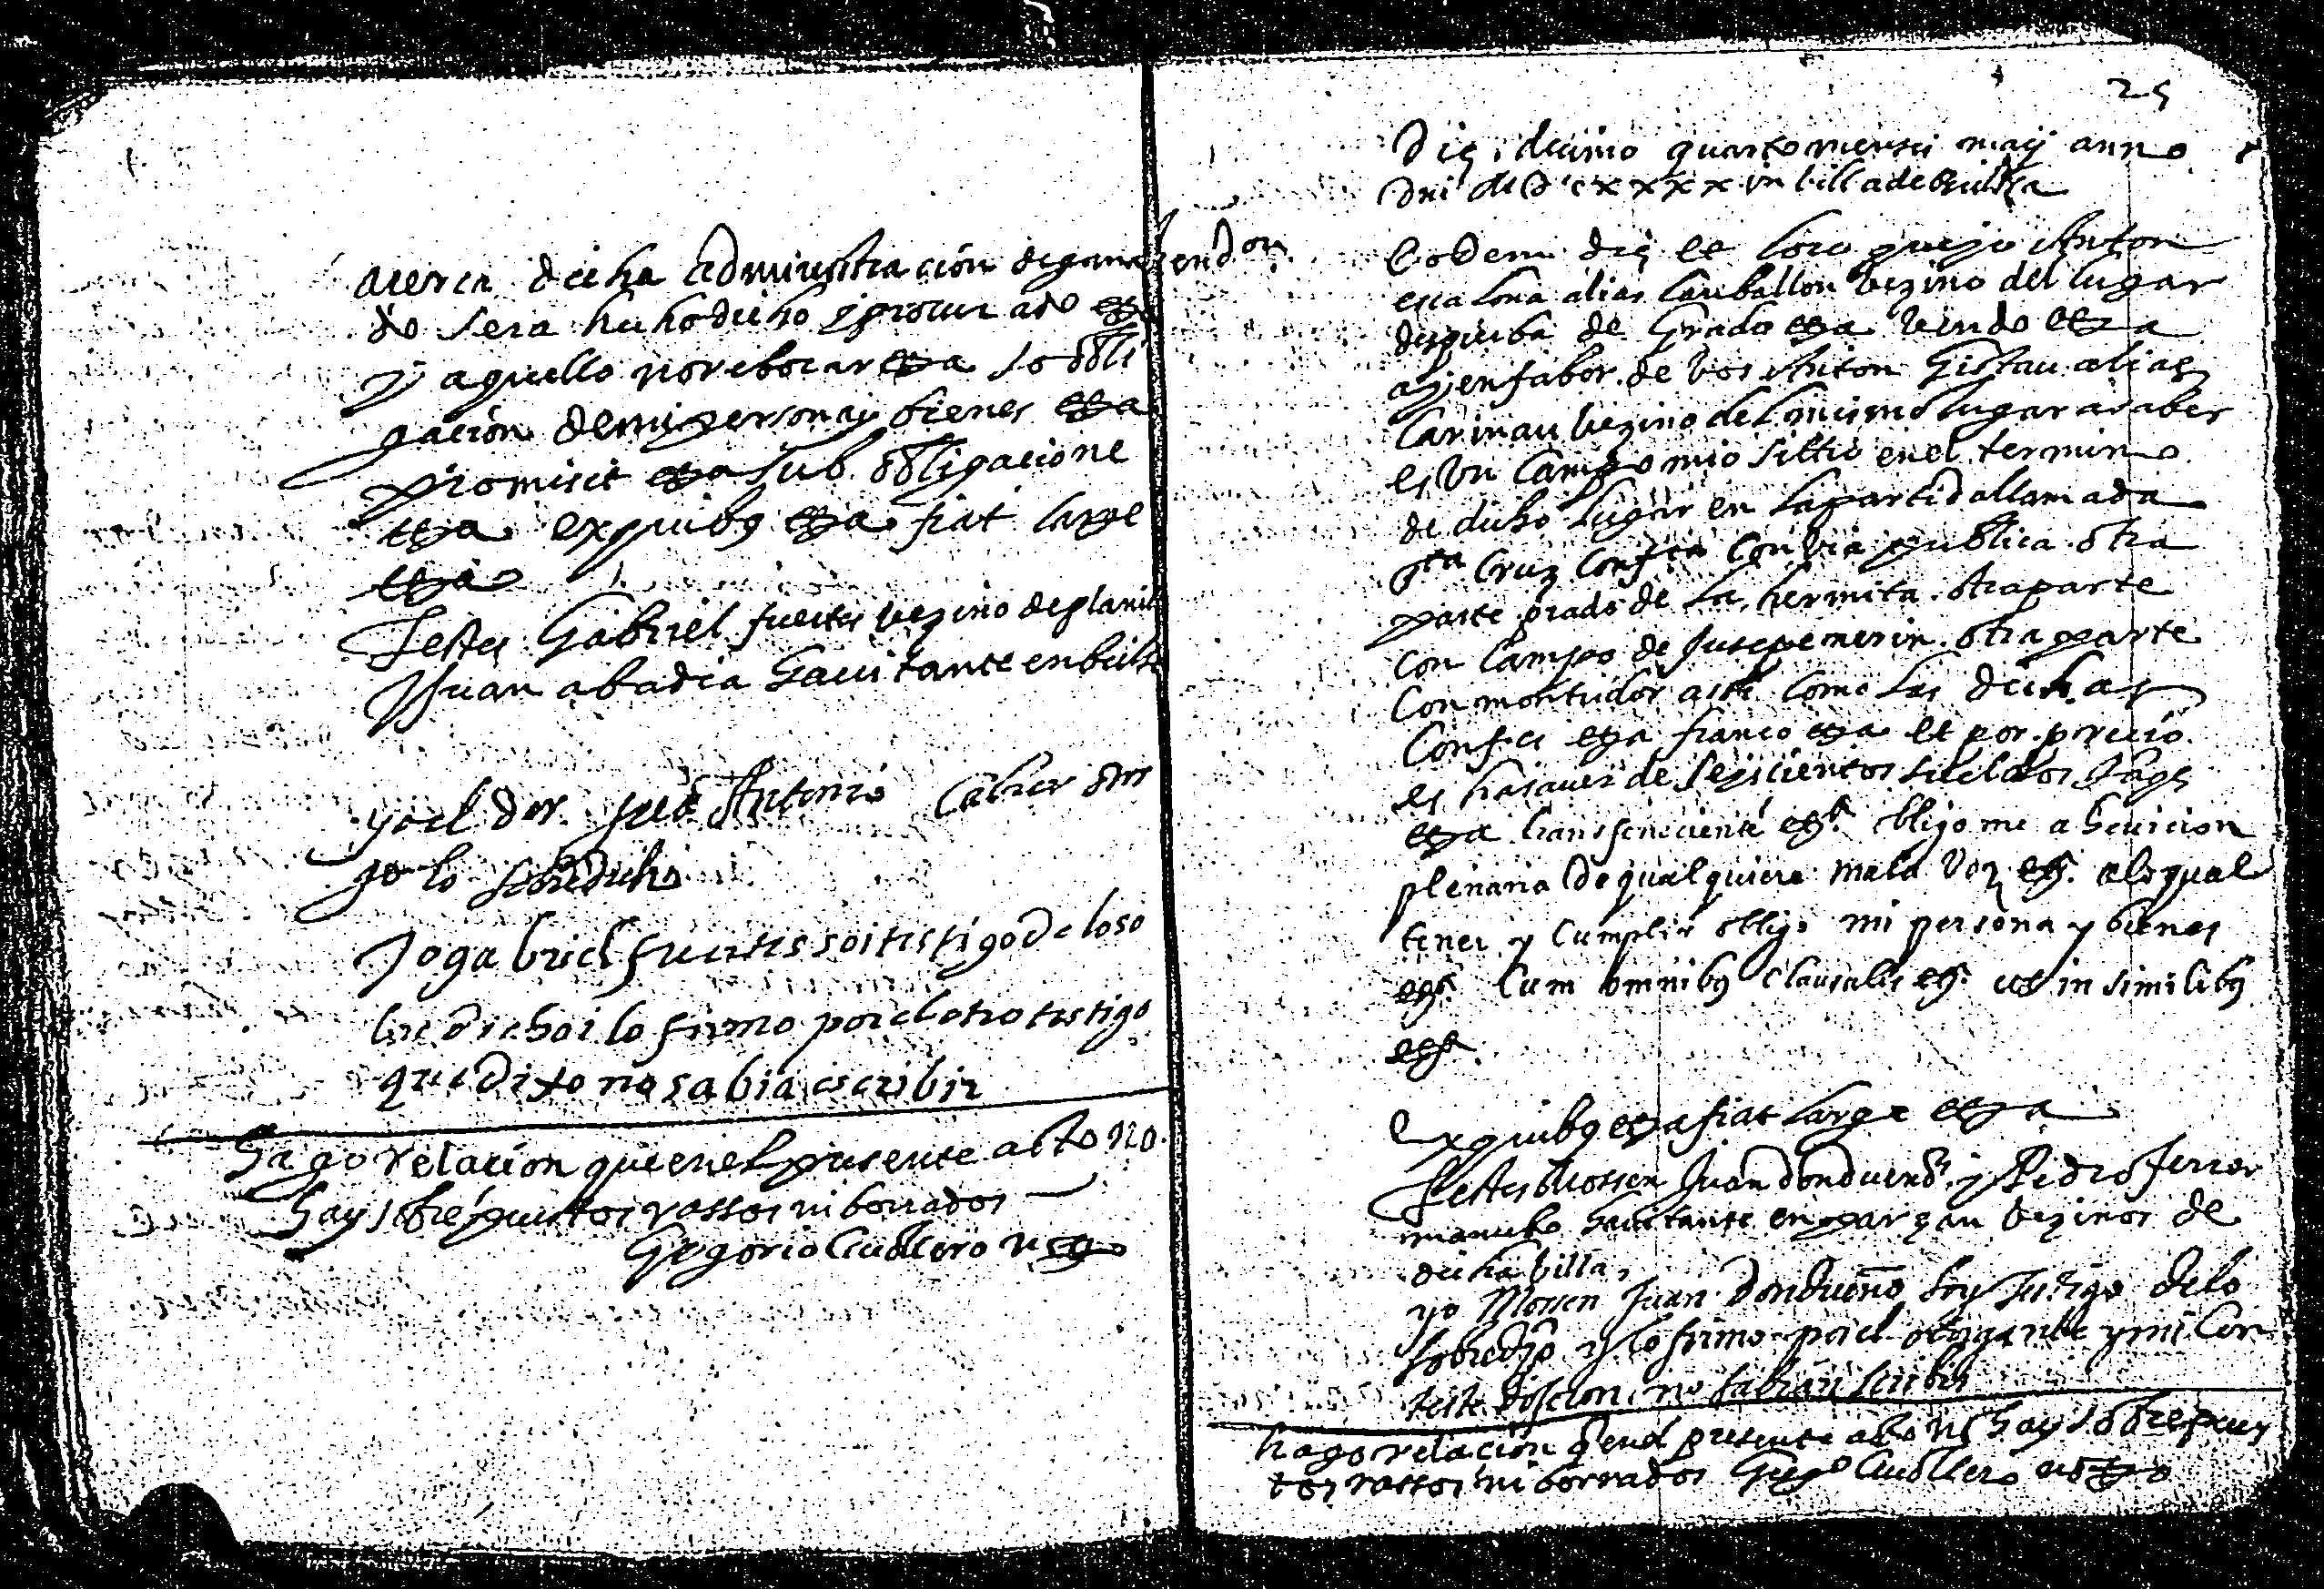 acerca dicha administracion digana hend on
do sera hecho dicho y procurado etza
y aquello no rebocar etza so obli
gacion de mi persona y bienes etza
promisit etza sub obligacione
etza ex quibus etza fiat large
etza
Testes Gabriel fuertes vezino de plan
Juan abadia hauitante en bielsa
yo el dor. Antonio
go lo sobredicho
Jo gabriel fuertes soi testigo de loso
bredicho i lo firmo por el otro testigo
que dixo no sabia escribir
hago relacion que en el presente acto no
hay sobrepuestos rassos ni borrados
Gregorio
25
Die decimo quarto mensis maij anno
Dni MDCxxxx in billa de Bielsa
Eodem die et loco que yo Anton
escalona alias vezino del lugar
de Grado etza vendo etza
en fabor de vos Anton Gistau alias
Carinau vezino del mismo lugar a saber
es un Campo mio sittio en el termino
de dicho lugar en la partida llamada
Sta Cruz confta con via publica otra
parte prado de la hermita otra parte
con Campo de Jusepe merin otra parte
Con assi como las dichas
etza franco etza et por precio
es hasauer de seyscientos sueldos Jaqs
etza etza obligo me a heviccion
plenaria de qualquiere mala voz etza a lo qual
tener y cumplir obligo mi persona y bienes
etza Cum omnibus clausulis etza ut in similibus
etza
Ex quibus etza fiat large etza
Testes Mossen Juan donduendo y Pedro ferrer
mancebo hauitante en parzan vezinos de
dicha billa
yo Mossen Juan Dondueno soy testigo delo
sobredho y lo firmo por el otorgante y mi Con
teste dixeron no sabian scribir
hago relacion q en el presente acto no hay sobrepues
tos rassos ni borrados Grego